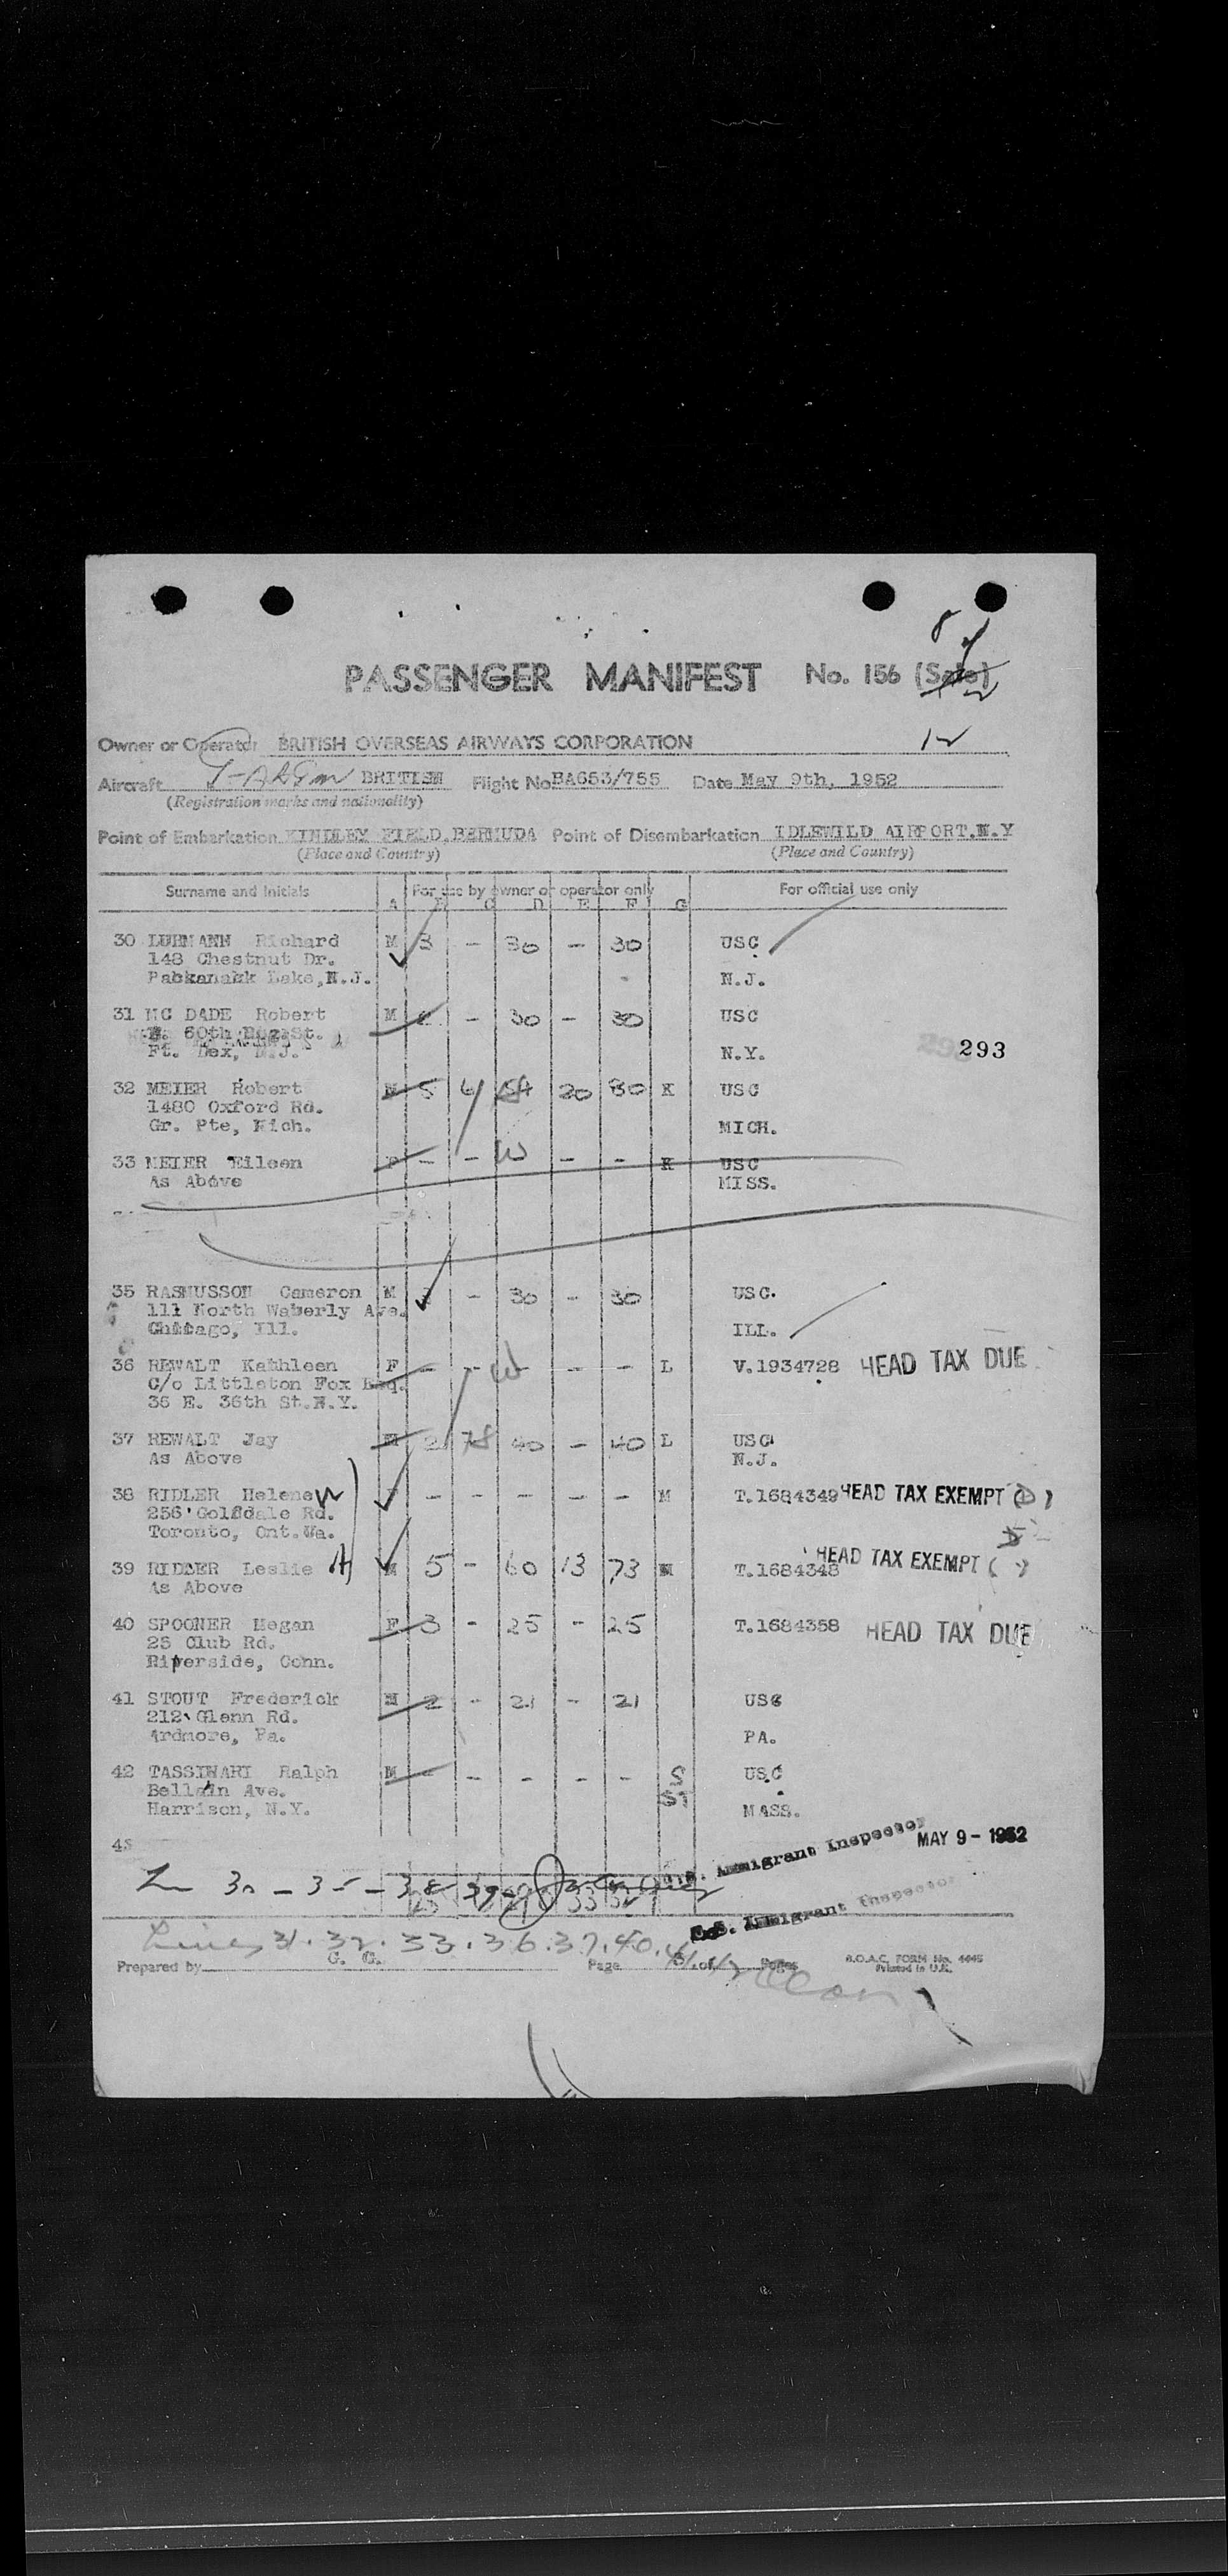 PASSENGER MANIFEST No. 156 (Sale)
8 of
12
Owner or Operator BRITISH OVERSEAS AIRWAYS CORPORATION
Aircraft BRITISH Flight No BA653/755 Date May 9th, 1952
(Registration marks and nationality)
Point of Embarkation KINDLEY FIELD, BERMUDA Point of Disembarkation IDLEWILD AIRPORT.N.Y
(Place and Country) (Place and Country)
Surname and Initials For use by owner or operator only For official use only
A B C D E F G
30 LUHMANN Richard M 3 - 30 - 30 USC
148 Chestnut Dr.
Packanakk Lake, N.J. N.J.
31 MC DADE Robert M - 30 - 30 USC
60th St.
Ft. Dex, N.J. N.Y. 293
32 MEIER Robert M 5 4 54 20 80 K USC
1480 Oxford Rd.
Gr. Pte, Mich. MICH.
33 MEIER Eileen F - - W - - K USC
As Above MISS.
35 RASMUSSON Cameron M - 30 - 30 USC.
111 North Waberly Ave.
Chicago, Ill. ILL.
36 REWALT Kathleen F - - W - - L V.1934728 HEAD TAX DUE
C/o Littleton Fox Esq.
36 E. 36th St.N.Y.
37 REWALT Jay M 2 78 40 - 40 L USC
As Above N.J.
38 RIDLER Helene W F - - - - - M T.1684349 HEAD TAX EXEMPT (D)
256 Golfdale Rd.
Toronto, Ont.
39 RIDLER Leslie H M 5 - 60 13 73 M T.1684348 HEAD TAX EXEMPT ( )
As Above
40 SPOONER Megan F 3 - 25 - 25 T.1684358 HEAD TAX DUE
25 Club Rd.
Riverside, Conn.
41 STOUT Frederick M 2 - 21 - 21 USC
212 Glenn Rd.
Ardmore, Pa. PA.
42 TASSINARI Ralph M - - - - - S USC
Bellain Ave. S1
Harrison, N.Y. MASS.
43
U.S. Immigrant Inspector MAY 9 - 1952
30 - 35 - 38 39
U.S. Immigrant Inspector
Lines 31. 32. 33. 36. 37. 40. 41. 42
Prepared by G. G. Page of Pages B.O.A.C. FORM No. 4445
Printed in U.K.